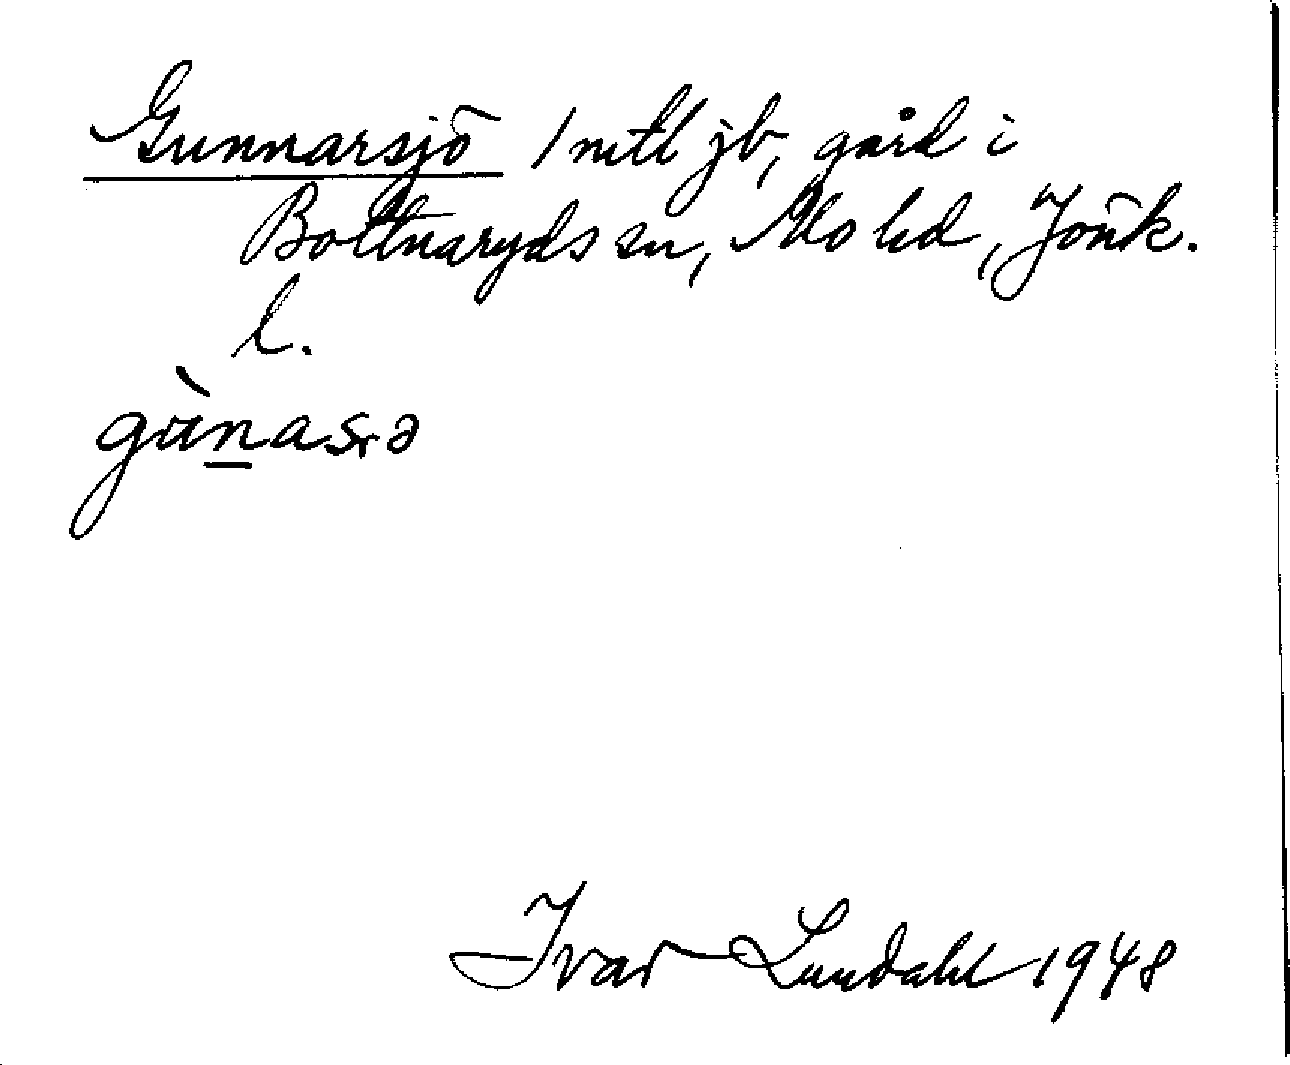 Gunnarsjö 1 mtl jb, gård i
Bottnaryds sn, Mo hd, Jönk.
l.
Ivar Lundahl 1948